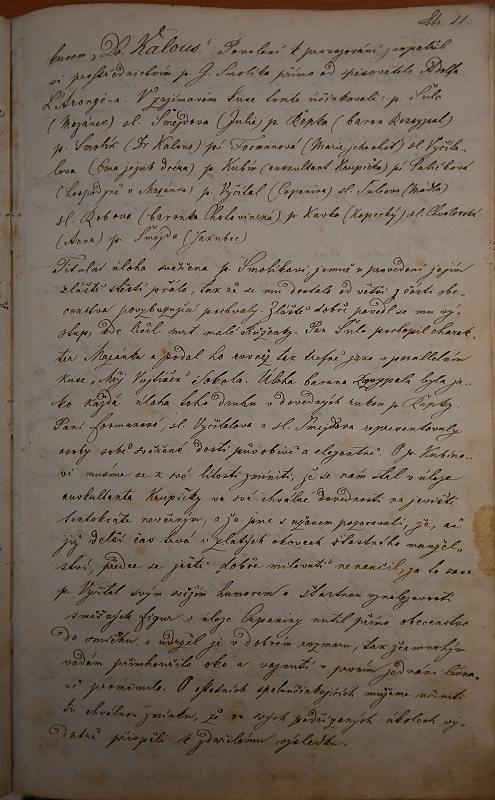 Str. 11.
kusem „Dr. Kalous." Povolení k provozování zaopatřil
si prostřednictvím p. G. Smolíka přímo od spisovatele Adolfa
L'Arronge-a. V zajímavém kuse tomto účinkovali: p. Šulc
(Mezánek) sl. Smejdova (Julie) p. Řepka (baron Rozsypal)
p. Smolík (Dr Kalous) pí Formanová (Marie, jeho choť) sl. Vyčíta-
lova (Ema jejich dcera) p. Kubín (auskultant Krupička) pí
(hospodyně u Mezánka) p. Vyčítal (Cepanina) sl. Šulcova (Madla)
sl. Robova (baronka) p. Kavka (Kopecký) sl.
(Anna) p. Smejda (Jakubec).
Titulní úloha svěřena p. Smolíkovi, jemuž v provedení jejím
zvlášť štěstí přálo, tak že se mu dostalo od větší části obe-
censtva povzbuzující pochvaly. Zvlášť dobře povedl se mu vý-
stup, kde léčil mrt malé Boženky. Pan Šulc pochopil charak-
ter Mezánka a podal ho rovněž tak trefně jako v parallelním
kuse „Můj Vojtíšek" Sokola. Úloha barona Rozsypala byla ja-
ko každá úloha toho druhu v dovedných rukou p. Řepky.
Paní Formanová, sl. Vyčítalova a sl. Smejdova representovaly
osoby sobě svěřené dosti půvabně a elegantně. O p. Kubíno-
vi musíme se k své lítosti zmíniti, že se nám stal v úloze
auskultanta Krupičky ve své chvalné dovednosti na jevišti
tentokráte nevěrným, a že jsme s úžasem pozorovali, že, ač
již delší čas trvá v zlatých okovech šťastného manžel-
ství, přece se ještě „dobře milovati" nenaučil, za to zase
p. Vyčítal svým svěžím humorem a šťastnou vynalézavostí
směšných figur v úloze Cepaniny nutil přímo obecenstvo
do smíchu, a udržel je v dobrém rozmaru, tak že mnohým
vadám přimhouřilo oko a váznutí v prvním jednání
promimulo. O ostatních spoluúčinkujících můžeme učiniti
tu chvalnou zmínku, že ve svých podřízených úkolech vy-
datně přispěli k zdařilému výsledku.